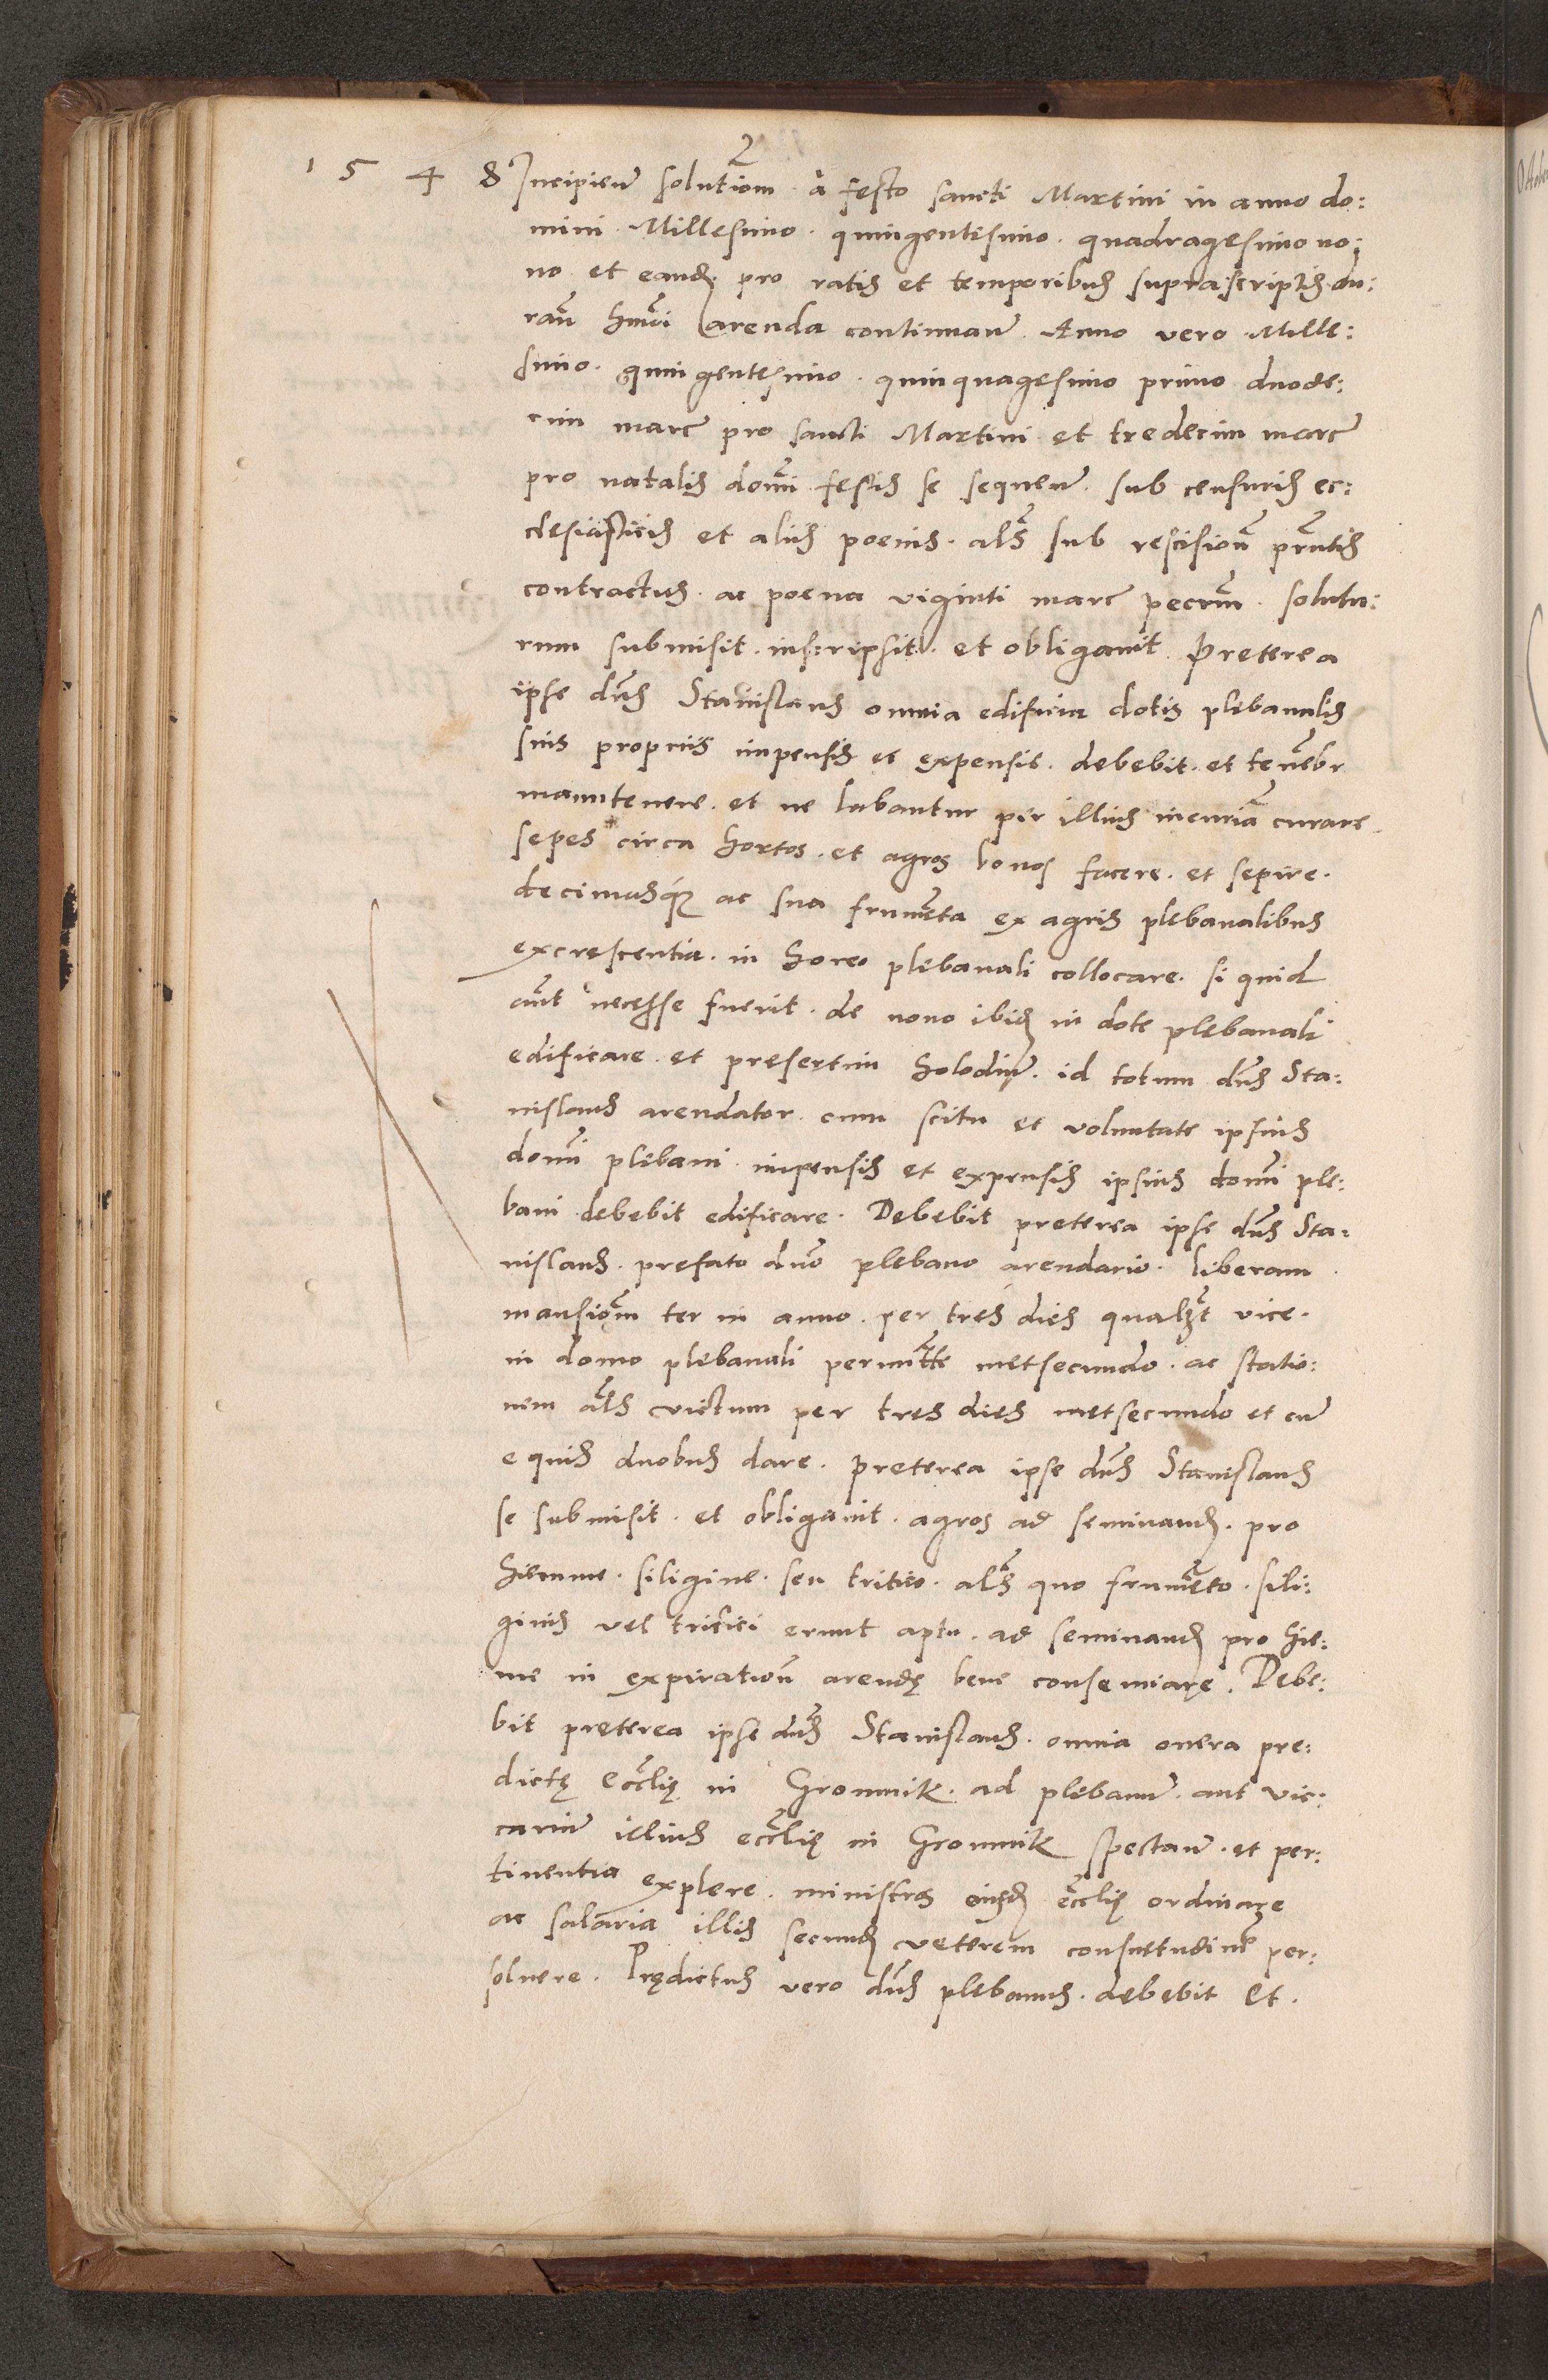 2
1 5 4 8 Incipien̄ solutiom̄ a festo sancti Martini in anno do:
mini Millesimo quingentesimo quadragesimo no:
no et eandꝫ pro ratis et temporibus suprascriptis du:
ran̄ hm̄oi arenda continuan̄ Anno vero Mille:
simo quingentesimo quinquagesimo primo duode:
cim marc̄ pro sancti Martini et tredecim marc̄
pro natalis domī festis se sequen̄ sub censuris ec:
clesiasticis et aliis poenis als̄ sub rescision̄ pn̄tis
contractus ac poena viginti marc̄ pecun̄ solutu:
rum submisit inscripsit et obligavit Preterea
ipse dn̄s Stanislaus omnia edificia dotis plebanalis
suis propriis impensis et expensis debebit et tenēbr
manutenere et ne labantur per illius incuriā curare
sepes circa hortos et agros bonos facere et sepire
decimasq; ac sua frumēta ex agris plebanalibus
excrescentia in horeo plebanali collocare si quid
aūt necesse fuerit de novo ibidꝫ in dote plebanali
edificare et presertim holodiū id totum dn̄s Sta:
nislaus arendator cum scitu et voluntate ipsius
domī plebani impensis et expensis ipsius domī ple:
bani debebit edificare Debebit preterea ipse dn̄s Sta:
nislaus prefato dn̄o plebano arendario liberam
mansiom̄ ter in anno per tres dies qualꝫt vice
in domo plebanali permitte metsecundo ac statio:
nem als̄ victum per tres dies metsecundo et cū
equis duobus dare preterea ipse dn̄s Stanislaus
se submisit et obligavit agros ad seminandꝫ pro
hieme siligine seu tritico als̄ quo frumēto sili:
ginis vel tritici erunt apta ad seminandꝫ pro hie:
me in expiration̄ arendę bene conseminare Debe:
bit preterea ipse dn̄s Stanislaus omnia onera pre:
dictę eccl̄ię in Gromnik ad plebanū aut vic:
cariū illius eccl̄ię in Gromnik spectan̄ et per:
tinentia explere ministros eiusdꝫ eccl̄ię ordinare
ac salaria illis secundꝫ veterem consuetudinē per:
solvere Prędictus vero dn̄s plebanus debebit et